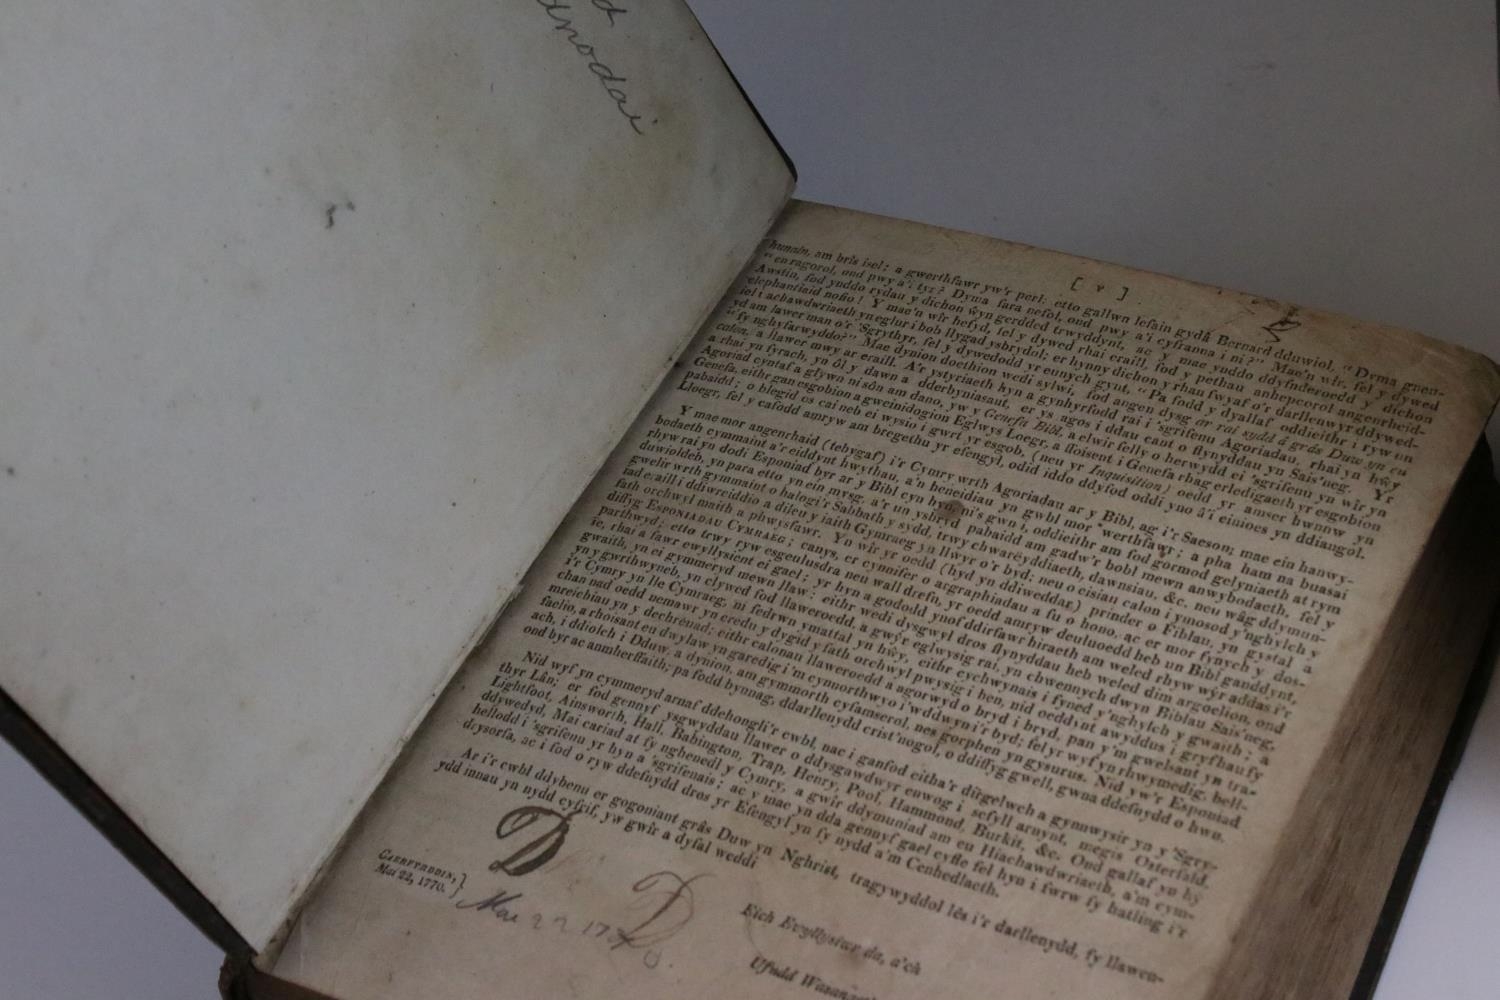 d
dnodai
[ v ]
hunain, am brîs isel; a gwerthfawr yw'r perl; etto gallwn lefain gydâ Bernard dduwiol, “Dyma
“en ragorol, ond pwy a'i tyr? Dyma fara nefol, ond pwy a'i cyfranna i ni?” Mae'n wîr, fel y dywed
Awstin, fod ynddo rydau y dichon ŵyn gerdded trwyddynt, ac y mae ynddo ddyfnderoedd y dichon
elephantiaid nofio! Y mae'n wîr hefyd, fel y dywed rhai eraill, fod y pethau anhepcorol angenrheid-
iol i achawdwriaeth yn eglur i bob llygad ysbrydol; er hynny dichon y rhan fwyaf o'r darllenwyr ddywed-
yd am lawer man o'r 'Sgrythyr, fel y dywedodd yr eunych gynt, “Pa fodd y dyallaf oddieithr i ryw un
“fy nghyfarwyddo?” Mae dynion doethion wedi sylwi, fod angen dysg ar rai sydd â grâs Duw yn eu
calon, a llawer mwy ar eraill. A'r ystyriaeth hyn a gynhyrfodd rai i 'sgrifenu Agoriadau, rhai yn hŵy
a rhai yn fyrach, yn ôl y dawn a dderbyniasant, er ys agos i ddau cant o flynyddau yn Sais'neg. Yr
Agoriad cyntaf a glywn ni sôn am dano, yw y Genefa Bibl, a elwir felly o herwydd ei 'sgrifenu yn wîr yn
Genefa, eithr gan esgobion a gweinidogion Eglwys Loegr, a ffoisent i Genefa rhag erledigaeth yr esgobion
pabaidd; o blegid os cai neb ei wysio i gwrt yr esgob, (neu yr Inquisition) oedd yr amser hwnnw yn
Lloegr, fel y cafodd amryw am bregethu yr efengyl, odid iddo ddyfod oddi yno â'i einioes yn ddiangol.
Y mae mor angenrhaid (tebygaf) i'r Cymry wrth Agoriadau ar y Bibl, ag i'r Saeson; mae ein hanwy-
bodaeth cymmaint a'r eiddynt hwythau, a'n heneidiau yn gwbl mor werthfawr; a pha ham na buasai
rhyw rai yn dodi Esponiad byr ar y Bibl cyn hyn, ni's gwn I, oddieithr am fod gormod gelyniaeth at rym
duwioldeb, yn para etto yn ein mysg, a'r un ysbryd pabaidd am gadw'r bobl mewn anwybodaeth, fel y
gwelir wrth gymmaint o halogi'r Sabbath y sydd, trwy chwarëyddiaeth, dawnsiau, &c. neu wâg ddymun-
iad e; aill i ddiwreiddio a dileu y iaith Gymraeg yn llwyr o'r byd; neu o eisiau calon i ymosod y'nghylch y
fath orchwyl maith a phwysfawr. Yn wîr yr oedd (hyd yn ddiweddar) prinder o Fiblau, yn gystal a
diffyg Esponiadau Cymraeg; canys, er cynnifer o argraphiadau a fu o hono, ac er mor fynych y dos-
parthwyd; etto trwy ryw esgeulusdra neu wall drefn, yr oedd amryw deuluoedd heb un Bibl ganddynt,
ïe, rhai a fawr ewyllysient ei gael; yr hyn a gododd ynof ddirfawr hiraeth am weled rhyw wŷr addas i'r
gwaith, yn ei gymmeryd mewn llaw: eithr wedi dysgwyl dros flynyddau heb weled dim argoelion, ond
yn y gwrthwyneb, yn clywed fod llaweroedd, a gwŷr eglwysig rai, yn chwennych dwyn Biblau Sais'neg,
i'r Cymry yn lle Cymraeg, ni fedrwn ymattal yn hŵy, eithr cychwynais i fyned y'nghylch y gwaith; a
chan nad oedd nemawr yn credu y dygid y fath orchwyl pwysig i ben, nid oeddynt awyddus i gryfhau fy
mreichiau yn y dechreuad; eithr calonau llaweroedd a agorwyd o bryd i bryd, pan y'm gwelsant yn tra-
faelio, a rhoisant eu dwylaw yn garedig i'm cynnorthwyo i'w ddwyn i'r byd; fel yr wyf yn rhwymedig, bell-
ach, i ddiolch i Dduw, a dynion, am gymmorth cyfamserol, nes gorphen yn gysurus. Nid yw'r Esponiad
ond byr ac anmherffaith; pa fodd bynnag, ddarllenydd crist'nogol, o ddiffyg gwell, gwna ddefnydd o hwn.
Nid wyf yn cymmeryd arnaf ddehongli'r cwbl, nac i ganfod eitha'r dirgelwch a gynnwysir yn y 'Sgry-
thyr Lân; er fod gennyf ysgwyddau llawer o ddysgawdwyr enwog i sefyll arnynt, megis Osterfald,
Lightfoot, Ainsworth, Hall, Babington, Trap, Henry, Pool, Hammond, Burkit, &c. Ond gallaf yn hŷ
ddywedyd, Mai cariad at fy nghenedl y Cymry, a gwîr ddymuniad am eu Hiachawdwriaeth, a'm cym-
hellodd i 'sgrifenu yr hyn a 'sgrifenais; ac y mae yn dda gennyf gael cyfle fel hyn i fwrw fy hatling i'r
drysorfa, ac i fod o ryw ddefnydd dros yr Efengyl yn fy nydd a'm Cenhedlaeth.
Ar i'r cwbl ddybenu er gogoniant grâs Duw yn Nghrist, tragywyddol lês i'r darllenydd, fy llawen-
ydd innau yn nydd cyfrif, yw gwîr a dyfal weddi
Eich Ewyllysiwr da, a'ch
Ufudd
Caerfyrddin,
Mai 22, 1770.
D
D
Mai 22 1770.